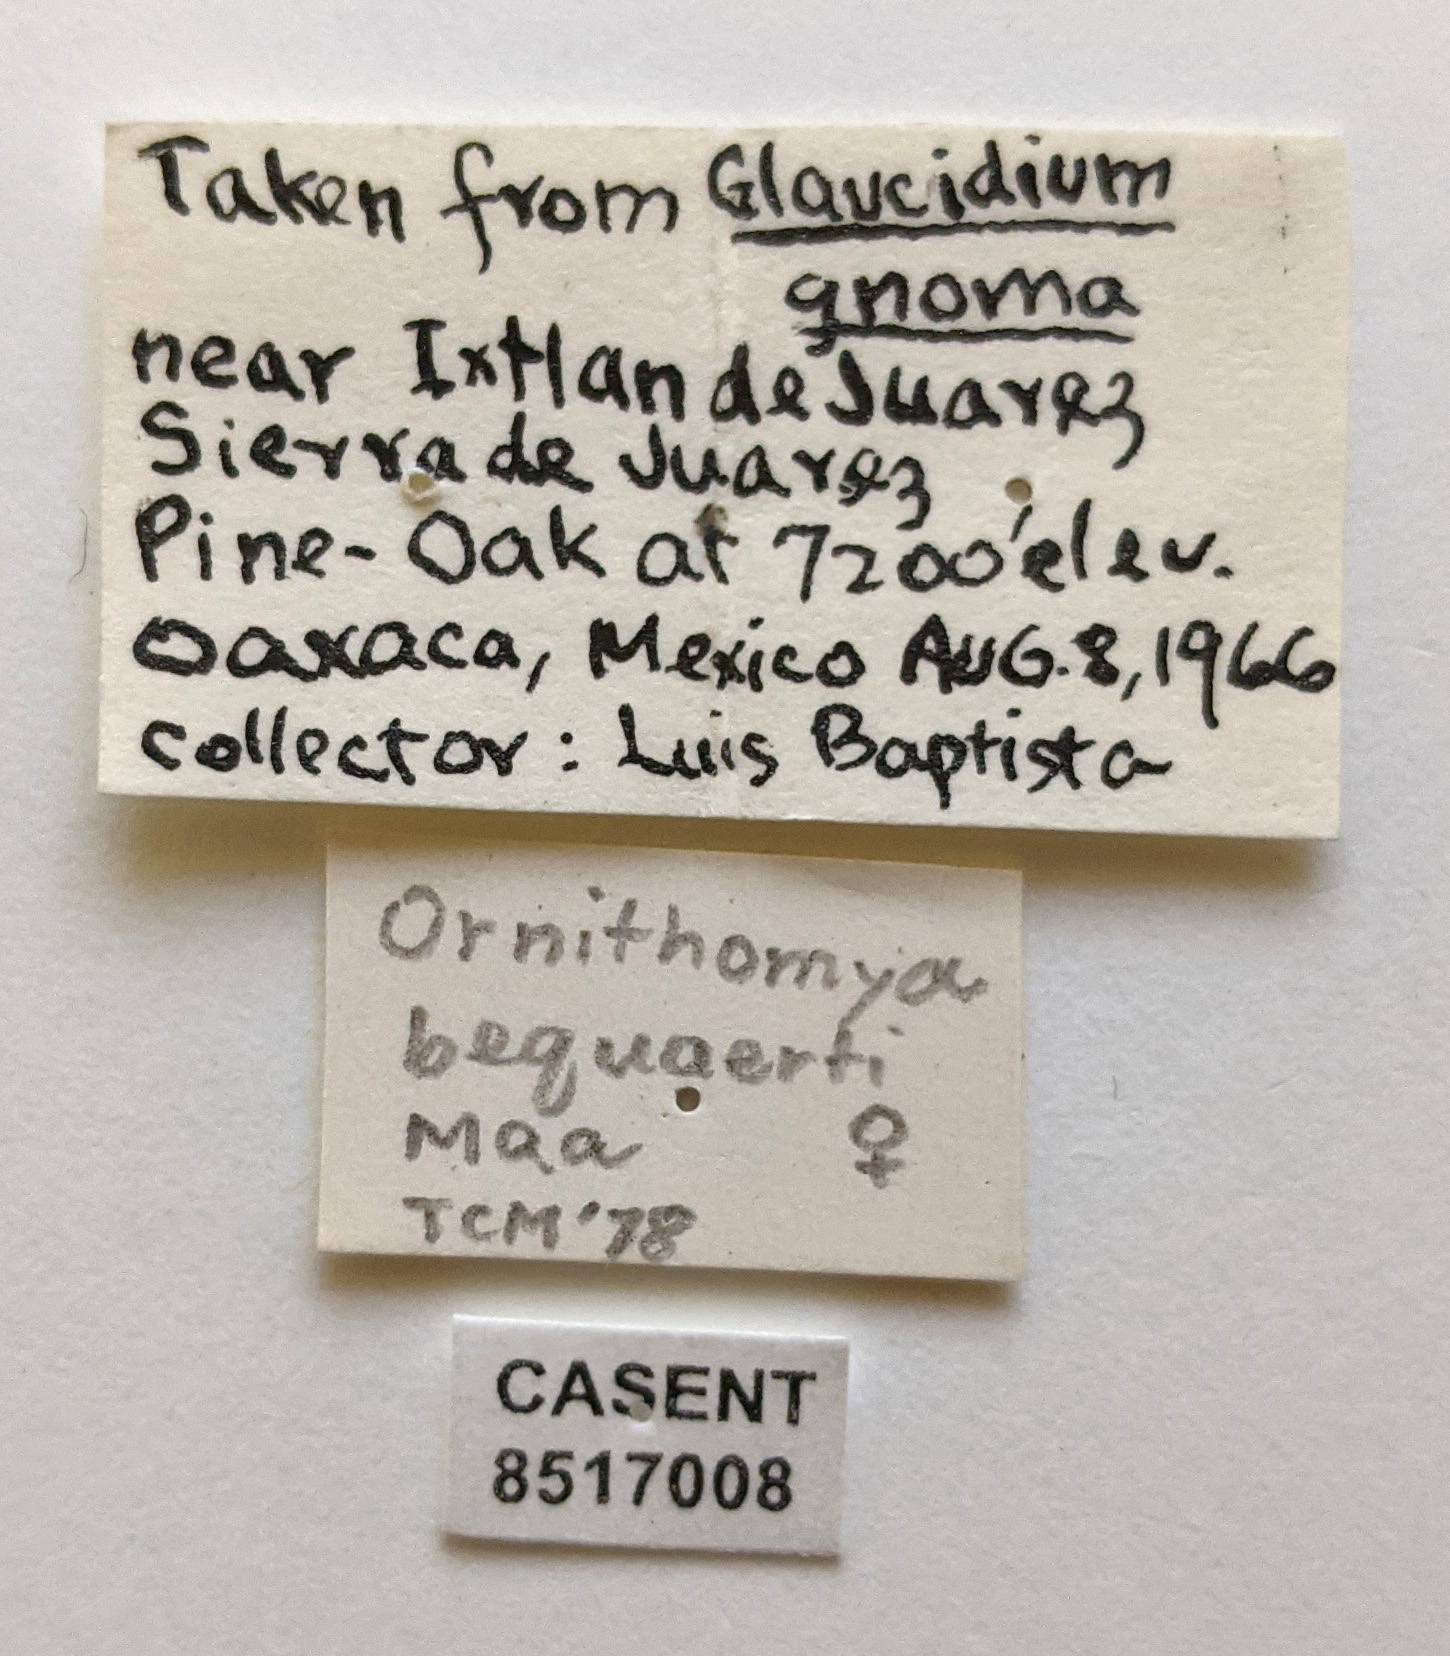 Taken from Glaucidium
gnoma
near Ixtlan de Juarez
Sierra de Juarez
Pine-Oak at 7200' elev.
Oaxaca, Mexico AUG. 8, 1966
collector: Luis Baptista
Ornithomya
bequaerti
Maa ♀
TCM '78
CASENT
8517008